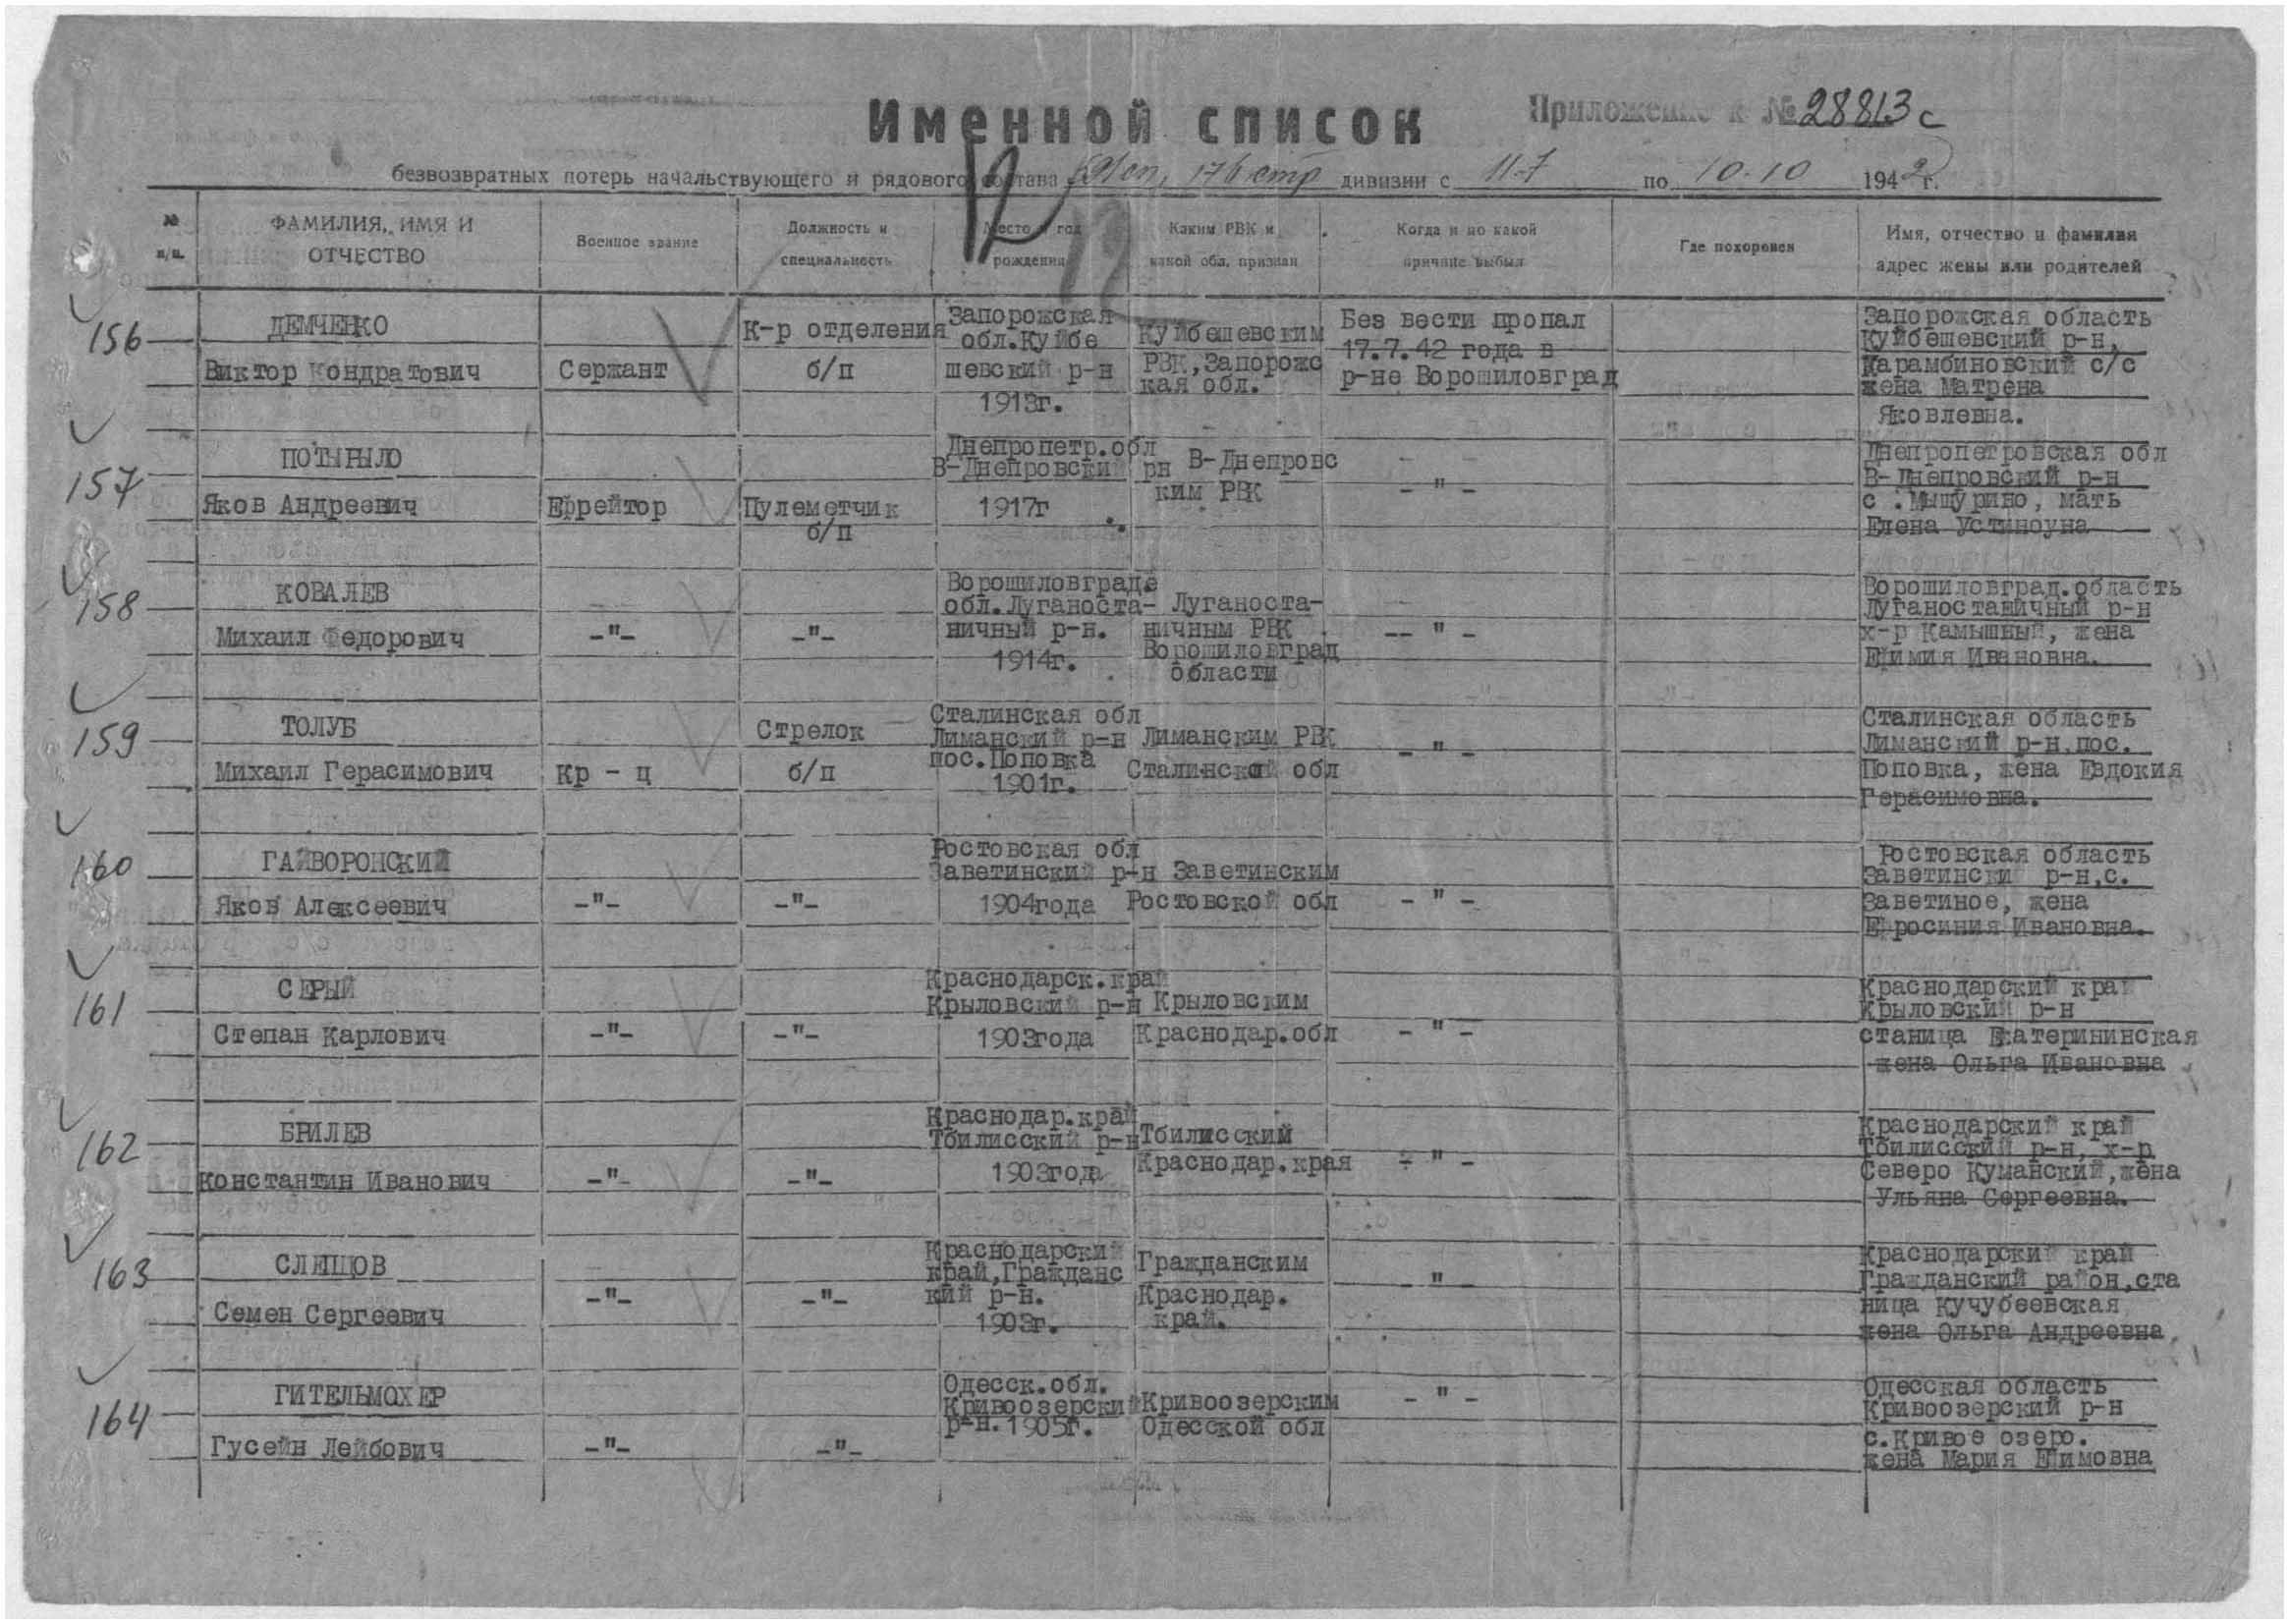 Именной список
Приложение к № 28813с
безвозвратных потерь начальствующего и рядового состава 176 стр дивизии с 11-7 по 10.10 1942 г.
№ п/п.
ФАМИЛИЯ, ИМЯ И ОТЧЕСТВО
Военное звание
Должность и специальность
Место и год рождения
Каким РВК и какой обл. призван
Когда и по какой причине выбыл
Где похоронен
Имя, отчество и фамилия адрес жены или родителей
156
ДЕМЧЕНКО
Виктор Кондратович
Сержант
К-р отделения
б/п
Запорожская
обл.Куйбе
шевский р-н
1913г.
Куйбешевским
РВК,Запорожс
кая обл.
Без вести пропал
17.7.42 года в
р-не Ворошиловград
Запорожская область
Куйбешевский р-н,
Царамбиновский с/с
жена Матрена
Яковлевна.
157
ПОТЫРЫЛО
Яков Андреевич
Ефрейтор
Пулеметчик
б/п
Днепропетр.обл
В-Днепровский рн
1917г
В-Днепровс
ким РВК
- " -
Днепропетровская обл
В-Днепровский р-н
с .Мышурино, мать
Елена Устиноуна
158
КОВАЛЕВ
Михаил Федорович
-"-
-"-
Ворошиловградс
обл.Луганоста-
ничный р-н.
1914г.
Луганоста-
ничным РВК
Ворошиловград
области
-- " -
Ворошиловград.область
Луганостаничный р-н
х-р Камышный, жена
Ефимия Ивановна.
159
ТОЛУБ
Михаил Герасимович
Кр - ц
Стрелок
б/п
Сталинская обл
Лиманский р-н
пос.Поповка
1901г.
Лиманским РВК
Сталинской обл
- " -
Сталинская область
Лиманский р-н,пос.
Поповка, жена Евдокия
Герасимовна.
160
ГАЙВОРОНСКИЙ
Яков Алексеевич
-"-
-"-
Ростовская обл
Заветинский р-н
1904года
Заветинским
Ростовской обл
- " -
Ростовская область
Заветински р-н,с.
Заветиное, жена
Ефросиния Ивановна.
161
СЕРЫЙ
Степан Карлович
-"-
-"-
Краснодарск.край
Крыловский р-н
1903года
Крыловским
Краснодар.обл
- " -
Краснодарский край
Крыловский р-н
станица Екатерининская
жена Ольга Ивановна
162
БРИЛЕВ
Константин Иванович
-"-
-"-
Краснодар.край
Тбилисский р-н
1903года
Тбилисский
Краснодар.края
- " -
Краснодарский край
Тбилисский р-н, х-р
Северо Куманский,жена
Ульяна Сергеевна.
163
СЛЕПЦОВ
Семен Сергеевич
-"-
-"-
Краснодарский
край,Гражданс
кий р-н.
1903г.
Гражданским
Краснодар.
край.
- " -
Краснодарский край
Гражданский район,ста
ница Кучубеевская
жена Ольга Андреевна
164
ГИТЕЛЬМОХЕР
Гусейн Лейбович
-"-
-"-
Одесск.обл.
Кривоозерский
р-н.1905г.
Кривоозерским
Одесской обл
- " -
Одесская область
Кривоозерский р-н
с.Кривое озеро.
жена Мария Ефимовна